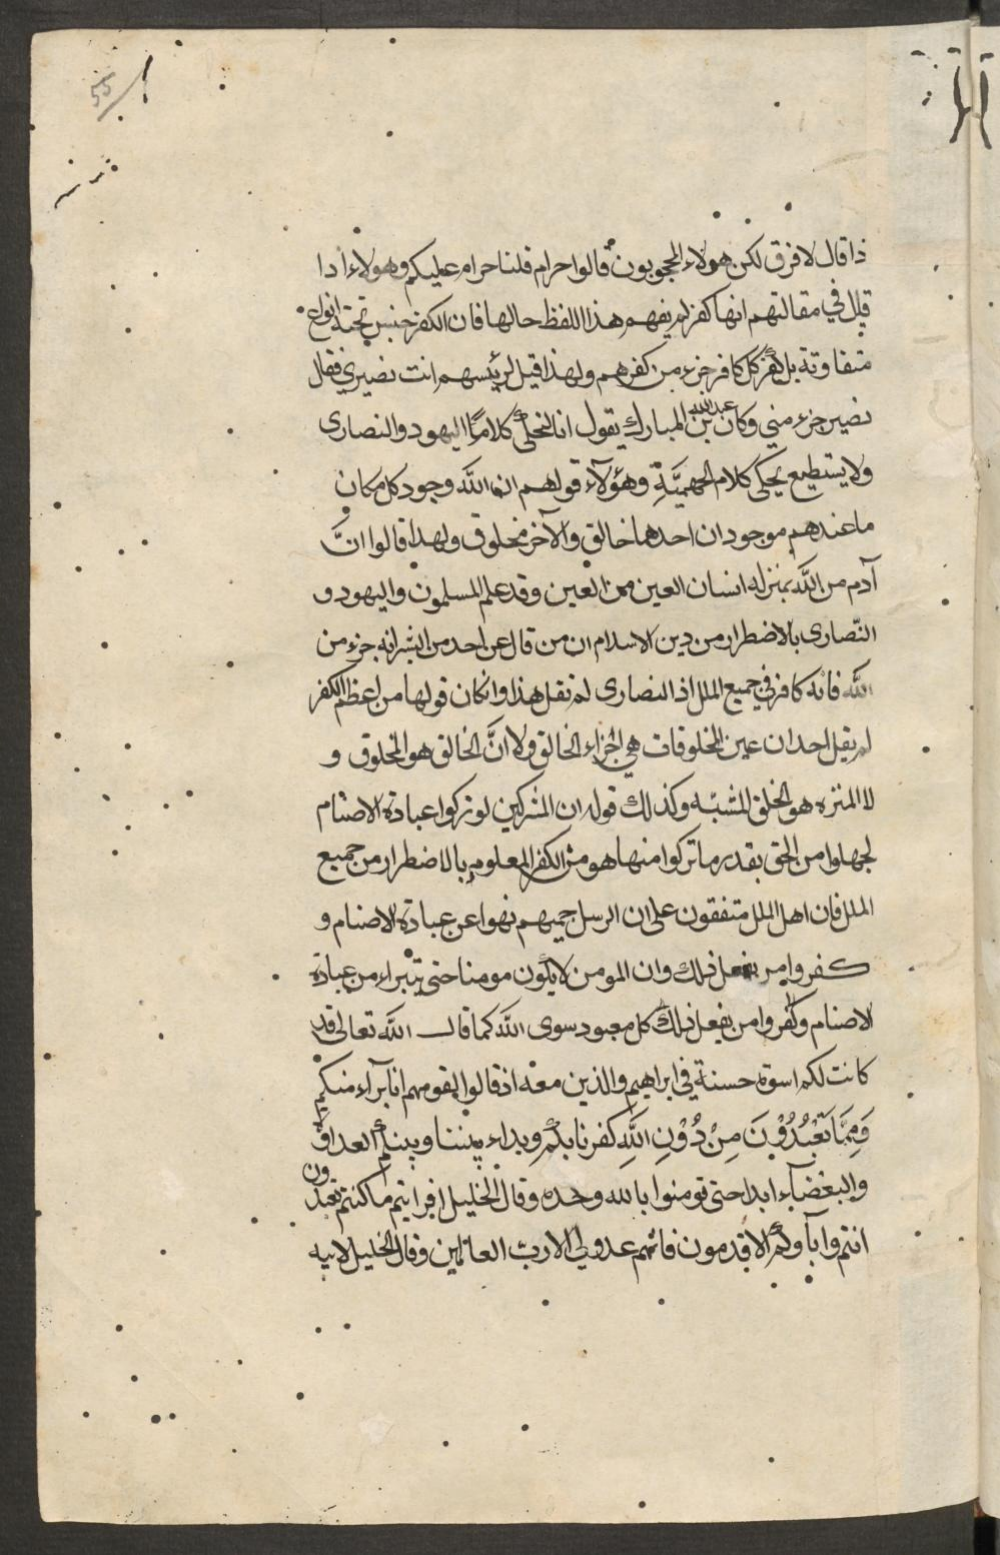 55
ذا قال لا فرق لكن هولاء المحجوبون قالوا حرام قلنا حرام عليكم وهولاء اذا
قيل في مقالتهم انها كفر لم يفهم هذا اللفظ حالها فان الكفر جنس تحته انواع
متفاوتة بل كفر كل كافر جزء من كفرهم ولهذا قيل لرئيسهم انت نصيري فقال
نصير جزء مني وكان عبد الله بن المبارك يقول انا لنحكي كلام اليهود والنصارى
ولا يستطيع يحكي كلام الجهميَّةِ وهؤلآء قولهم ان الله وجود كل مكان
ما عندهم موجودان احدهما خالق والآخر مخلوق ولهذا قالوا انَّ
آدم من الله بمنزله انسان العين من العين وقد علم المسلمون واليهود و
النصارى بالاضطرار من دين الاسلام ان من قال عن احد من البشر انه جزء من
الله فانه كافر في جميع الملل اذ النصارى لم تقل هذا وانكان قولها من اعظم الكفر
لم يقل احد ان عين المخلوقات هي اجزاء الخالق ولا انَّ الخالق هو المخلوق و
لا المنزه هو الخلق المشبّه وكذلك قوله ان المشركين لو تركوا عبادة الاصنام
لجهلوا من الحق بقدر ما تركوا منها هو من الكفر المعلوم بالاضطرار من جميع
الملل فان اهل الملل متفقون على ان الرسل جميهم نهوا عن عبادة الاصنام و
كفروا من يفعل ذلك وان المومن لا يكون مومنا حتى يتبراء من عبادة
الاصنام وكفروا من يفعل ذلك كل معبود سوى الله كما قال الله تعالى قد
كانت لكم اسوة حسنة في ابراهيم والذين معه اذ قالوا لقومهم انا برآء منكم
وَمِمَّا تَعْبُدُوْنَ مِنْ دُوْنِ اللهِ كفرنا بكم وبداء بيننا وبينكم العداوة
والبغضآء ابدا حتى تومنوا بالله وحده وقال الخليل افرايتم ما كنتم تعبدون
انتم وآباوكم الاقدمون فانهم عدو لي الا رب العالمين وقال الخليل لابيه